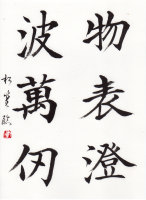 物表澄
波萬仞